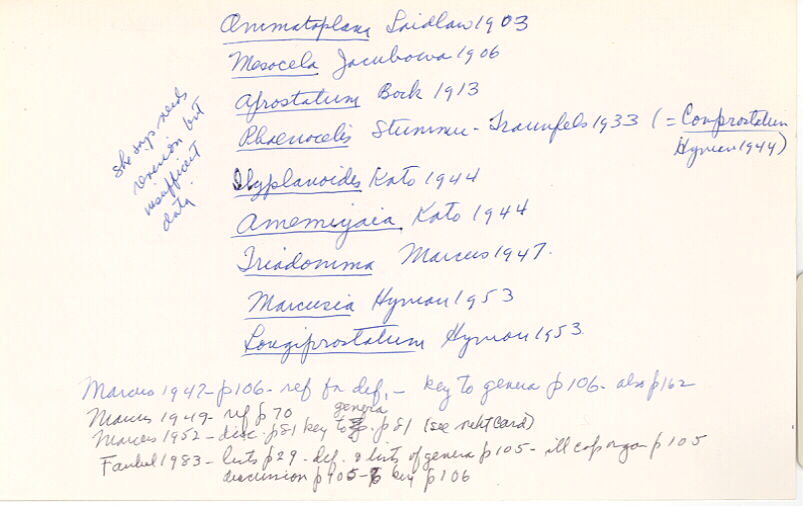 Ommatoplana Laidlaw 1903
Mesocela Jacubowa 1906
Afrostatum Bock 1913
Phaenocelis Stummer-Traunfels 1933 (= Comprostatum
Hyman 1944)
she says needs
revision but
insufficient
data
Ilyplanoides Kato 1944
Amemiyaia Kato 1944
Triadomma Marcus 1947.
Marcusia Hyman 1953
Longiprostatum Hyman 1953.
Marcus 1947 - p106 - ref for def. - key to genera p106 - also p162
Marcus 1949 - ref p70
Marcus 1952 - disc. p81 key to genera p81 (see next card)
Faubel 1983 - lists p29 - def. & lists of genera p105 - ill cop organ p105
discussion p105-6 key p106